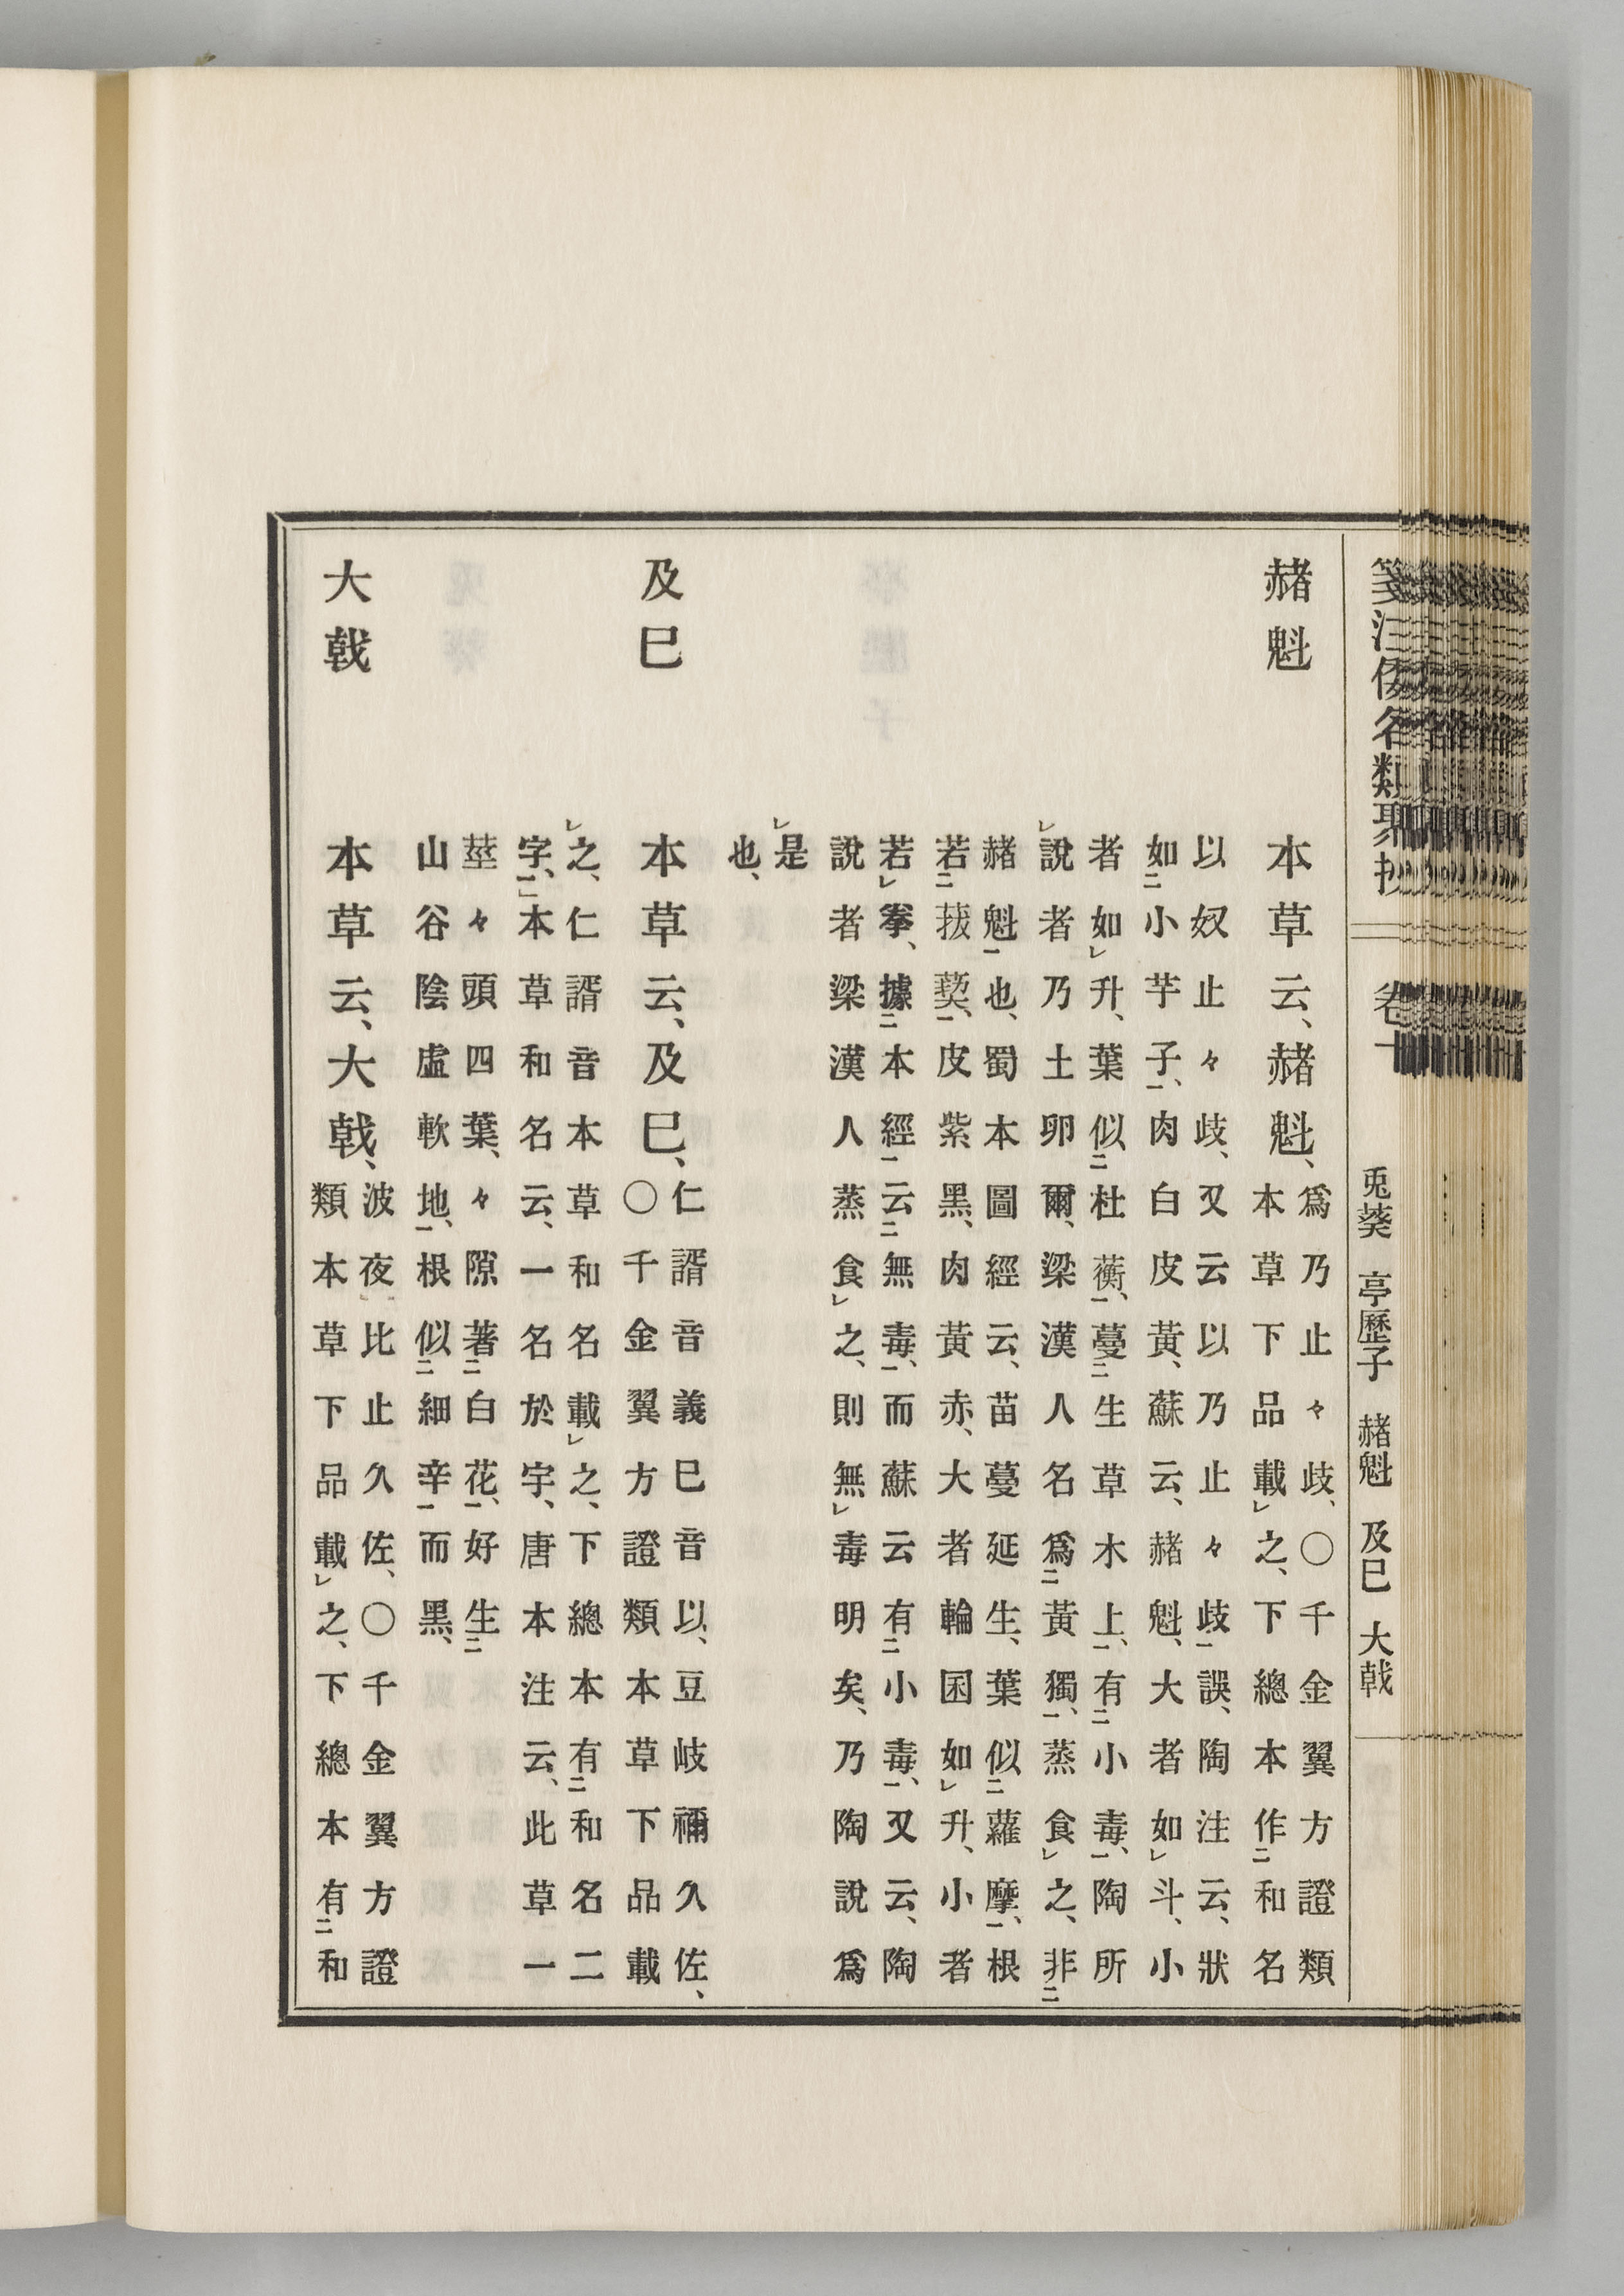 箋注倭名類聚抄 卷十 兎葵 亭歷子 赭魁 及巳 大戟
赭魁 本草云、赭魁、
爲乃止々歧、〇千金翼方證類
本草下品載㆑之、下總本作㆓和名
以奴止々歧、又云以乃止々歧㆒誤、陶注云、狀
如㆓小芋子㆒、肉白皮黃、蘇云、赭魁、大者如㆑斗、小
者如㆑升、葉似㆓杜蘅㆒、蔓㆓生草木上㆒、有㆓小毒㆒、陶所
㆑說者乃土卵爾、梁漢人名爲㆓黃獨㆒、蒸食㆑之、非㆓
赭魁㆒也、蜀本圖經云、苗蔓延生、葉似㆓蘿摩㆒、根
若㆓菝葜㆒、皮紫黑、肉黃赤、大者輪囷如㆑升、小者
若㆑拳、據㆓本經㆒云㆓無毒㆒、而蘇云有㆓小毒㆒、又云、陶
說者梁漢人蒸食㆑之、則無㆑毒明矣、乃陶說爲
㆑是
也、
及巳 本草云、及巳、
仁諝音義巳音以、豆岐禰久佐、
〇千金翼方證類本草下品載
㆑之、仁諝音本草和名載㆑之、下總本有㆓和名二
字㆒、本草和名云、一名於宇、唐本注云、此草一
莖々頭四葉、々隙著㆓白花㆒、好生㆓
山谷陰虛軟地㆒、根似㆓細辛㆒而黑、
大戟 本草云、大戟、
波夜比止久佐、〇千金翼方證
類本草下品載㆑之、下總本有㆓和